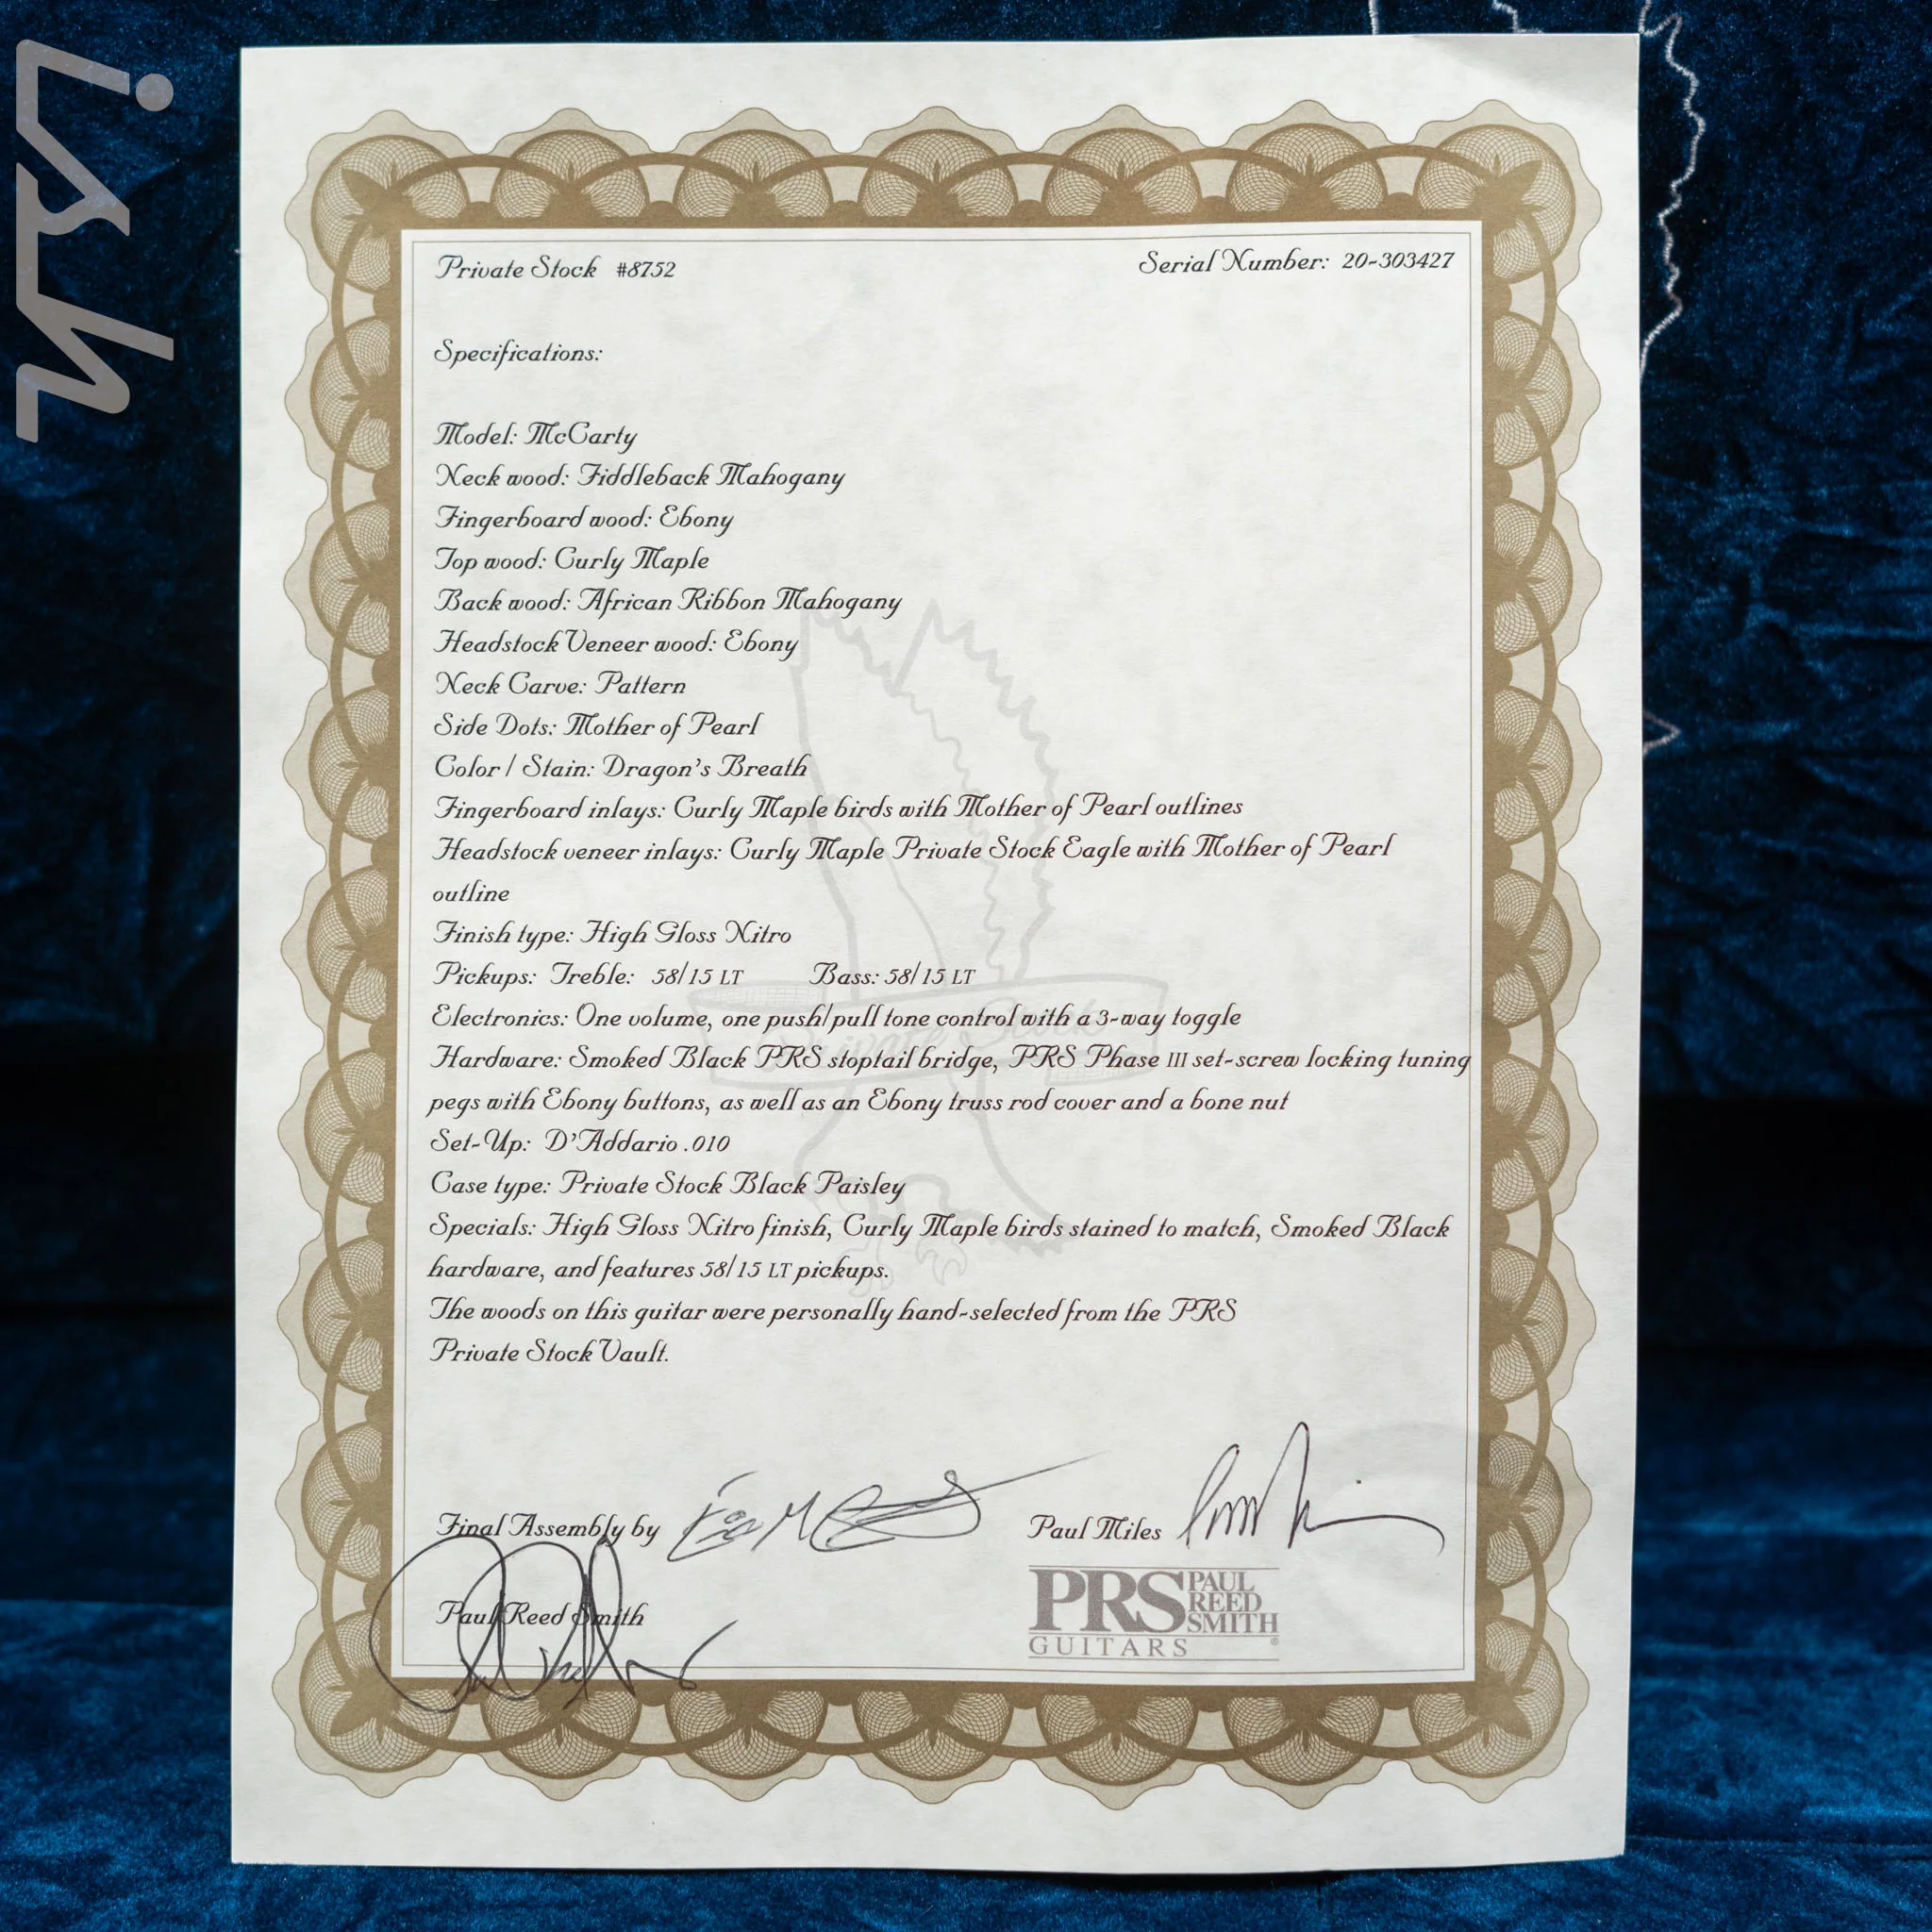 ish
Private Stock #8752
Serial Number: 20-303427
Specifications:
Model: McCarty
Neck wood: Fiddleback Mahogany
Fingerboard wood: Ebony
Top wood: Curly Maple
Back wood: African Ribbon Mahogany
Headstock Veneer wood: Ebony
Neck Carve: Pattern
Side Dots: Mother of Pearl
Color / Stain: Dragon's Breath
Fingerboard inlays: Curly Maple birds with Mother of Pearl outlines
Headstock veneer inlays: Curly Maple Private Stock Eagle with Mother of Pearl
outline
Finish type: High Gloss Nitro
Pickups: Treble: 58/15 LT Bass: 58/15 LT
Electronics: One volume, one push/pull tone control with a 3-way toggle
Private Stock
Hardware: Smoked Black PRS stoptail bridge, PRS Phase III set-screw locking tuning
pegs with Ebony buttons, as well as an Ebony truss rod cover and a bone nut
Set-Up: D'Addario .010
Case type: Private Stock Black Paisley
Specials: High Gloss Nitro finish, Curly Maple birds stained to match, Smoked Black
hardware, and features 58/15 LT pickups.
The woods on this guitar were personally hand-selected from the PRS
Private Stock Vault.
Final Assembly by
Paul Miles
Paul Reed Smith
PRS PAUL
REED
SMITH
GUITARS